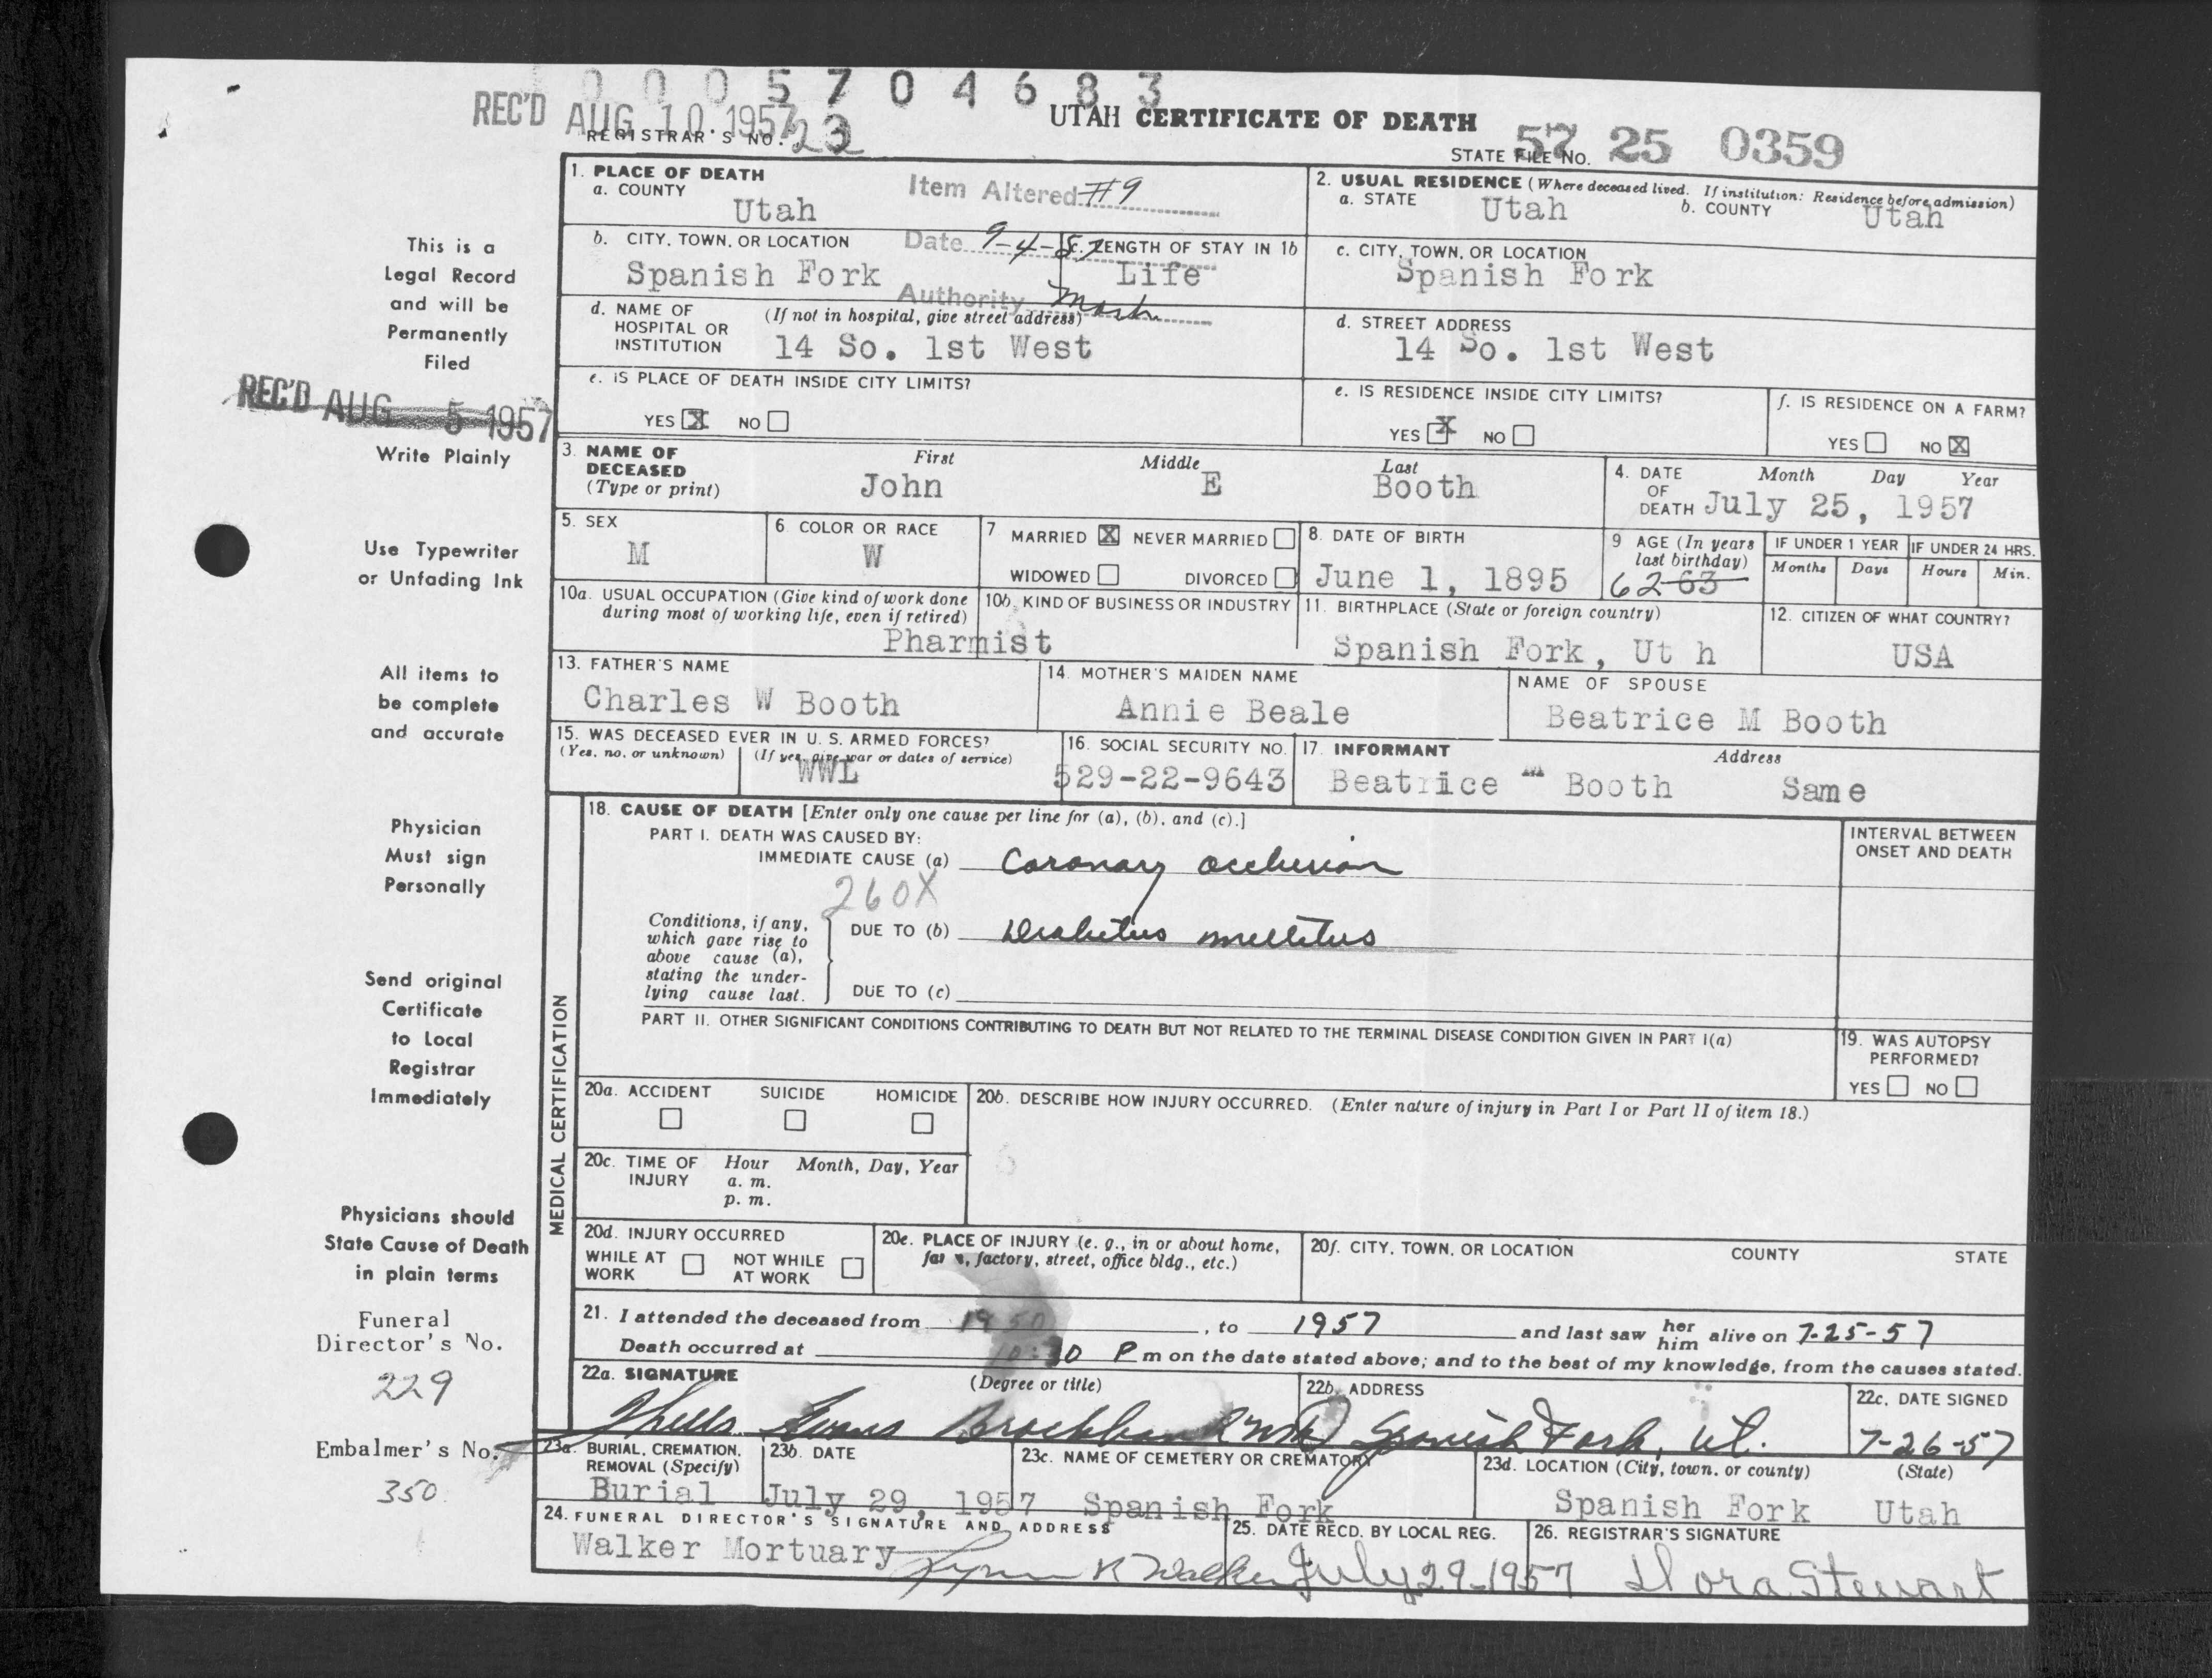 0005704683
REC'D AUG 10 1957
REGISTRAR'S NO. 23
UTAH CERTIFICATE OF DEATH
STATE FILE NO. 57 25 0359
1. PLACE OF DEATH
a. COUNTY
Utah
Item Altered #9
2. USUAL RESIDENCE (Where deceased lived. If institution: Residence before admission)
a. STATE
Utah
b. COUNTY
Utah
b. CITY, TOWN, OR LOCATION
Spanish Fork
Date 9-4-57
c. LENGTH OF STAY IN 1b
Life
c. CITY, TOWN, OR LOCATION
Spanish Fork
Authority
d. NAME OF HOSPITAL OR INSTITUTION
(If not in hospital, give street address)
14 So. 1st West
d. STREET ADDRESS
14 So. 1st West
e. IS PLACE OF DEATH INSIDE CITY LIMITS?
YES X NO
e. IS RESIDENCE INSIDE CITY LIMITS?
YES X NO
f. IS RESIDENCE ON A FARM?
YES NO X
3. NAME OF DECEASED (Type or print)
First Middle Last
John E Booth
4. DATE OF DEATH
Month Day Year
July 25, 1957
5. SEX
M
6. COLOR OR RACE
W
7 MARRIED X NEVER MARRIED
WIDOWED DIVORCED
8. DATE OF BIRTH
June 1, 1895
9 AGE (In years last birthday)
62 63
IF UNDER 1 YEAR
Months Days
IF UNDER 24 HRS.
Hours Min.
10a. USUAL OCCUPATION (Give kind of work done during most of working life, even if retired)
Pharmist
10b. KIND OF BUSINESS OR INDUSTRY
11. BIRTHPLACE (State or foreign country)
Spanish Fork, Ut h
12. CITIZEN OF WHAT COUNTRY?
USA
13. FATHER'S NAME
Charles W Booth
14. MOTHER'S MAIDEN NAME
Annie Beale
NAME OF SPOUSE
Beatrice M Booth
15. WAS DECEASED EVER IN U. S. ARMED FORCES?
(Yes, no, or unknown) (If yes, give war or dates of service)
WWI
16. SOCIAL SECURITY NO.
529-22-9643
17. INFORMANT
Address
Beatrice M Booth Same
MEDICAL CERTIFICATION
18. CAUSE OF DEATH [Enter only one cause per line for (a), (b), and (c).]
PART I. DEATH WAS CAUSED BY:
IMMEDIATE CAUSE (a) Coronary occlusion
260X
Conditions, if any, which gave rise to above cause (a), stating the underlying cause last.
DUE TO (b) Diabetus mellitus
DUE TO (c)
INTERVAL BETWEEN ONSET AND DEATH
PART II. OTHER SIGNIFICANT CONDITIONS CONTRIBUTING TO DEATH BUT NOT RELATED TO THE TERMINAL DISEASE CONDITION GIVEN IN PART I(a)
19. WAS AUTOPSY PERFORMED?
YES NO
20a. ACCIDENT SUICIDE HOMICIDE
20b. DESCRIBE HOW INJURY OCCURRED. (Enter nature of injury in Part I or Part II of item 18.)
20c. TIME OF INJURY
Hour Month, Day, Year
a. m.
p. m.
20d. INJURY OCCURRED
WHILE AT WORK NOT WHILE AT WORK
20e. PLACE OF INJURY (e. g., in or about home, farm, factory, street, office bldg., etc.)
20f. CITY, TOWN, OR LOCATION COUNTY STATE
21. I attended the deceased from 1950, to 1957 and last saw her him alive on 7-25-57
Death occurred at 10:30 P m on the date stated above; and to the best of my knowledge, from the causes stated.
22a. SIGNATURE (Degree or title)
Evans Brockbank MD
22b. ADDRESS
Spanish Fork, Ut.
22c. DATE SIGNED
7-26-57
23a. BURIAL, CREMATION, REMOVAL (Specify)
Burial
23b. DATE
July 29, 1957
23c. NAME OF CEMETERY OR CREMATORY
Spanish Fork
23d. LOCATION (City, town, or county) (State)
Spanish Fork Utah
24. FUNERAL DIRECTOR'S SIGNATURE AND ADDRESS
Walker Mortuary
K Walker
25. DATE RECD. BY LOCAL REG.
July 29-1957
26. REGISTRAR'S SIGNATURE
Dora Stewart
This is a
Legal Record
and will be
Permanently
Filed
REC'D AUG 5 1957
Write Plainly
Use Typewriter
or Unfading Ink
All items to
be complete
and accurate
Physician
Must sign
Personally
Send original
Certificate
to Local
Registrar
Immediately
Physicians should
State Cause of Death
in plain terms
Funeral
Director's No.
229
Embalmer's No.
350